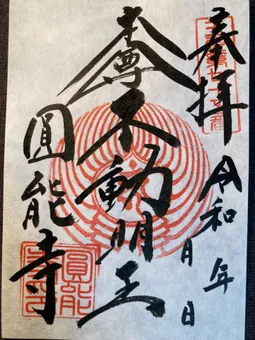 奉拝
令和 年 月 日
本尊
不動明王
圓能寺